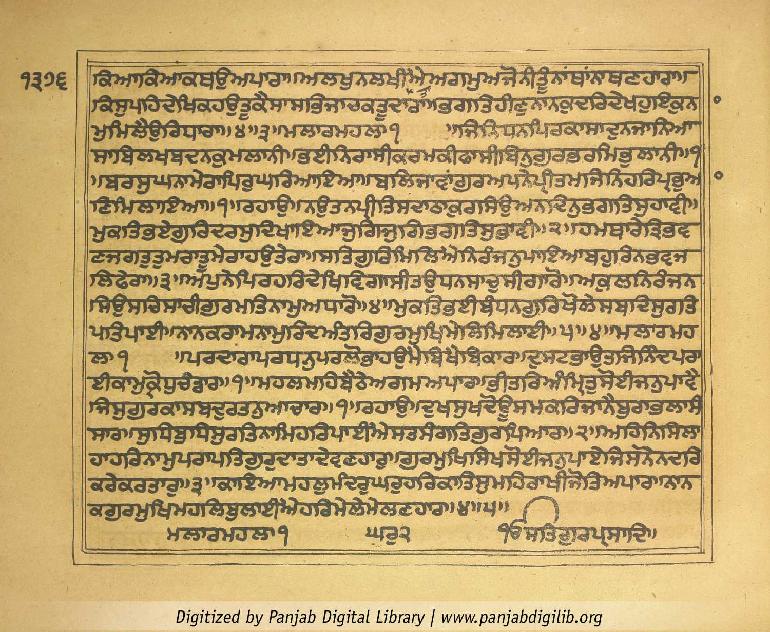 ੧੩੭੬
ਕਿਆਕਿਆਕਥਉਅਪਾਰਾ॥ਅਲਖੁਨਲਖੀਐਅਗਮੁਅਜੋਨੀਤੂੰਨਾਥਾਂਨਾਥਣਹਾਰਾ॥
ਕਿਸੁਪਹਿਦੇਖਿਕਹਉਤੂਕੈਸਾਸਭਿਜਾਚਕਤੂਦਾਤਾਰਾ॥ਭਗਤਿਹੀਣੁਨਾਨਕੁਦਰਿਦੇਖਹੁਇਕੁਨਾ
ਮੁਮਿਲੈਉਰਿਧਾਰਾ॥੪॥੩॥ਮਲਾਰਮਹਲਾ੧ ॥ਜਿਨਿਧਨਪਿਰਕਾਸਾਦੁਨਜਾਨਿਆ
ਸਾਬਿਲਖਬਦਨਕੁਮਲਾਨੀ॥ਭਈਨਿਰਾਸੀਕਰਮਕੀਫਾਸੀਬਿਨੁਗੁਰਭਰਮਿਭੁਲਾਨੀ॥੧
॥ਬਰਸੁਘਨਾਮੇਰਾਪਿਰੁਘਰਿਆਇਆ॥ਬਲਿਜਾਵਾਂਗੁਰਅਪਨੇਪ੍ਰੀਤਮਜਿਨਿਹਰਿਪ੍ਰਭੁਆ
ਣਿਮਿਲਾਇਆ॥੧॥ਰਹਾਉ॥ਨਉਤਨਪ੍ਰੀਤਿਸਦਾਠਾਕੁਰਸਿਉਅਨਦਿਨੁਭਗਤਿਸੁਹਾਵੀ॥
ਮੁਕਤਿਭਏਗੁਰਿਦਰਸੁਦਿਖਾਇਆਜੁਗਿਜੁਗਿਭਗਤਿਸੁਭਾਵੀ॥੨॥ਹਮਥਾਰੇਤ੍ਰਿਭਵ
ਣਜਗੁਤੁਮਰਾਤੂਮੇਰਾਹਉਤੇਰਾ॥ਸਤਿਗੁਰਿਮਿਲਿਐਨਿਰੰਜਨੁਪਾਇਆਬਹੁਰਿਨਭਵਜ
ਲਿਫੇਰਾ॥੩॥ਅਪੁਨੇਪਿਰਹਰਿਦੇਖਿਵਿਗਾਸੀਤਉਧਨਸਾਚੁਸੀਗਾਰੋ॥ਅਕੁਲਨਿਰੰਜਨ
ਸਿਉਸਚਿਸਾਚੀਗੁਰਮਤਿਨਾਮੁਅਧਾਰੋ॥੪॥ਮੁਕਤਿਭਈਬੰਧਨਗੁਰਿਖੋਲੇਸਬਦਿਸੁਰਤਿ
ਪਤਿਪਾਈ॥ਨਾਨਕਰਾਮਨਾਮੁਰਿਦਅੰਤਰਿਗੁਰਮੁਖਿਮੇਲਿਮਿਲਾਈ॥੫॥੪॥ਮਲਾਰਮਹ
ਲਾ੧ ॥ਪਰਦਾਰਾਪਰਧਨੁਪਰਲੋਭਾਹਉਮੈਬਿਖੈਬਿਕਾਰ॥ਦੁਸਟਭਾਉਤਜਿਨਿੰਦਪਰਾ
ਈਕਾਮੁਕ੍ਰੋਧੁਚੰਡਾਰ॥੧॥ਮਹਲਮਹਿਬੈਠੇਅਗਮਅਪਾਰ॥ਭੀਤਰਿਅੰਮ੍ਰਿਤੁਸੋਈਜਨੁਪਾਵੈ
ਜਿਸੁਗੁਰਕਾਸਬਦੁਰਤਨੁਆਚਾਰ॥੧॥ਰਹਾਉ॥ਦੁਖਸੁਖਦੋਊਸਮਕਰਿਜਾਨੈਬੁਰਾਭਲਾਸੰ
ਸਾਰ॥ਸੁਧਿਬੁਧਿਸੁਰਤਿਨਾਮਿਹਰਿਪਾਈਐਸਤਸੰਗਤਿਗੁਰਪਿਆਰ॥੨॥ਅਹਿਨਿਸਿਲਾ
ਹਾਹਰਿਨਾਮੁਪਰਾਪਤਿਗੁਰੁਦਾਤਾਦੇਵਣਹਾਰੁ॥ਗੁਰਮੁਖਿਸਿਖਸੋਈਜਨੁਪਾਏਜਿਸਨੋਨਦਰਿ
ਕਰੇਕਰਤਾਰੁ॥੩॥ਕਾਇਆਮਹਲੁਮੰਦਰੁਘਰੁਹਰਿਕਾਤਿਸੁਮਹਿਰਾਖੀਜੋਤਿਅਪਾਰ॥ਨਾਨ
ਕਗੁਰਮੁਖਿਮਹਲਿਬੁਲਾਈਐਹਰਿਮੇਲੇਮੇਲਣਹਾਰ॥੪॥੫॥
ਮਲਾਰਮਹਲਾ੧ ਘਰੁ੨ ੴਸਤਿਗੁਰਪ੍ਰਸਾਦਿ॥
Digitized by Panjab Digital Library | www.panjabdigilib.org